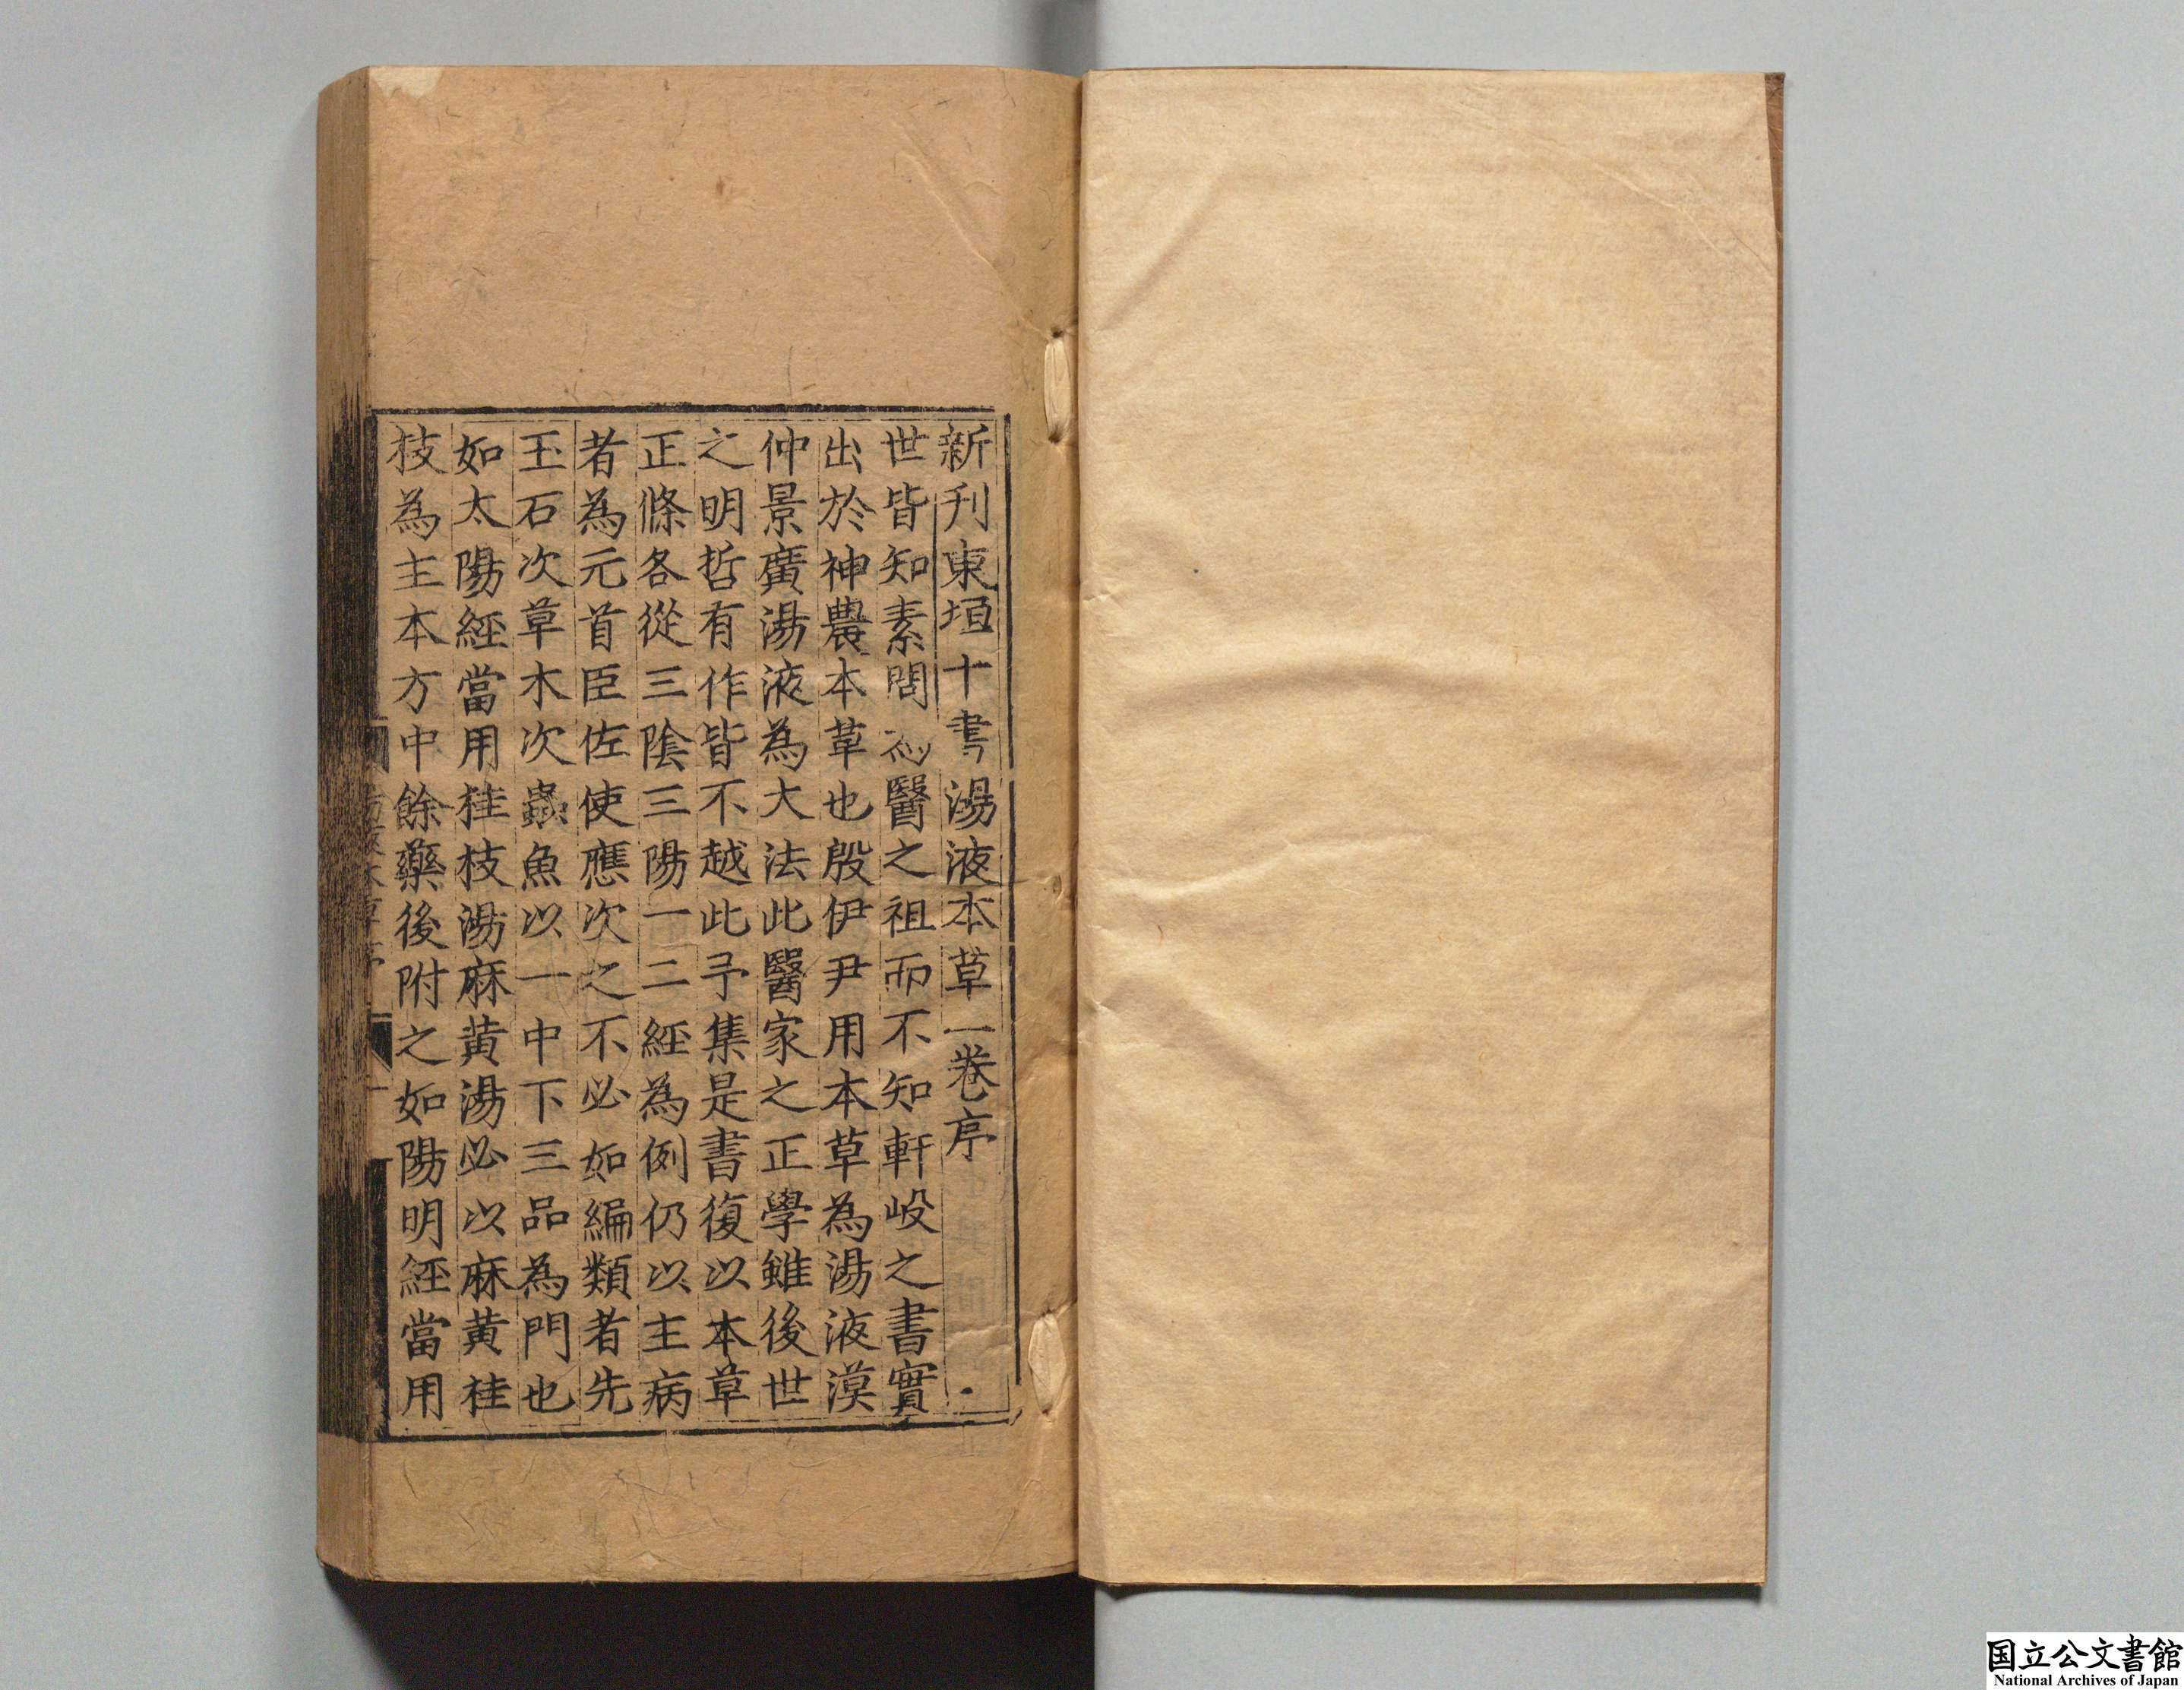 新刋東垣十書湯液本草一卷序
世皆知素問為醫之祖而不知軒岐之書實
出於神農本草也殷伊尹用本草為湯液漢
仲景廣湯液為大法此醫家之正學雖後世
之明哲有作皆不越此予集是書復以本草
正條各從三陰三陽一二經為例仍以主病
者為元首臣佐使應次之不必如編類者先
玉石次草木次蟲魚以一中下三品為門也
如太陽經當用桂枝湯麻黃湯必以麻黃桂
枝為主本方中餘藥後附之如陽明經當用
国立公文書館
National Archives of Japan